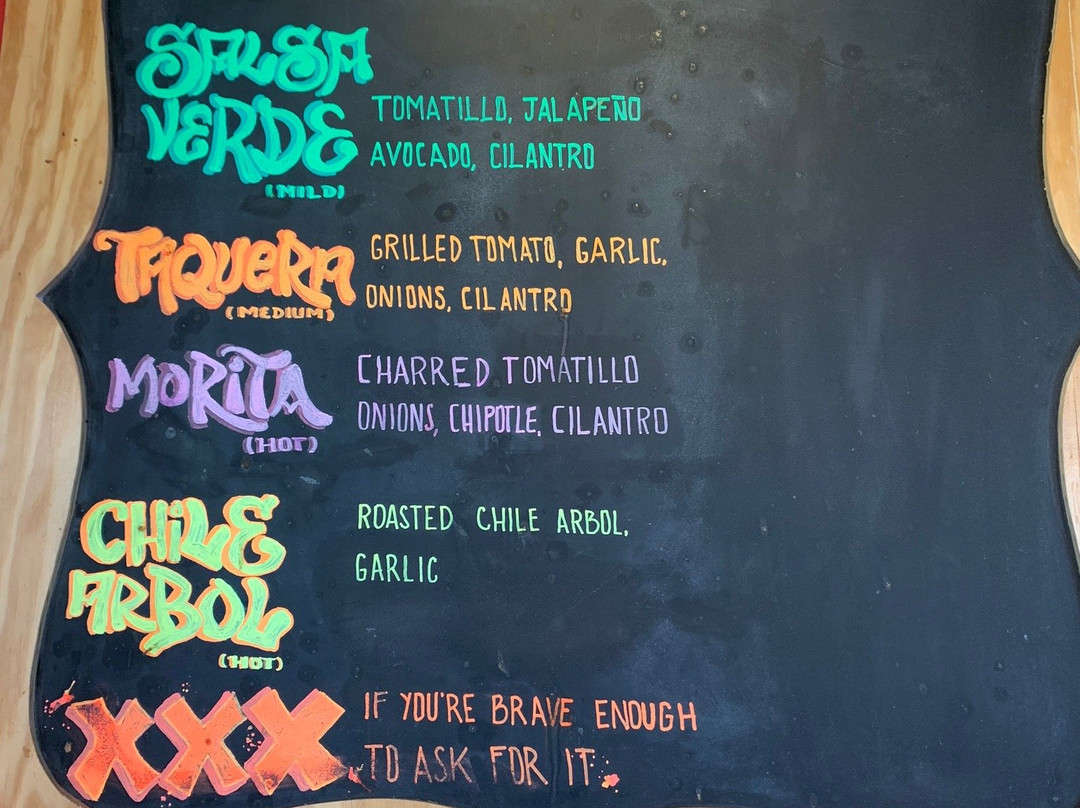 SALSA
VERDE
(MILD)
TOMATILLO, JALAPEÑO
AVOCADO, CILANTRO
TAQUERIA
(MEDIUM)
GRILLED TOMATO, GARLIC,
ONIONS, CILANTRO
MORITA
(HOT)
CHARRED TOMATILLO
ONIONS, CHIPOTLE, CILANTRO
CHILE
ARBOL
(HOT)
ROASTED CHILE ARBOL,
GARLIC
XXX
IF YOU'RE BRAVE ENOUGH
TO ASK FOR IT.